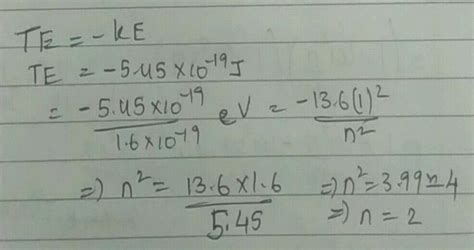 TE = -KE
TE = -5.45 × 10⁻¹⁹ J
= -5.45 × 10⁻¹⁹ / 1.6 × 10⁻¹⁹ eV = -13.6(1)² / n²
⇒ n² = 13.6 × 1.6 / 5.45 ⇒ n² = 3.99 ≃ 4
⇒ n = 2